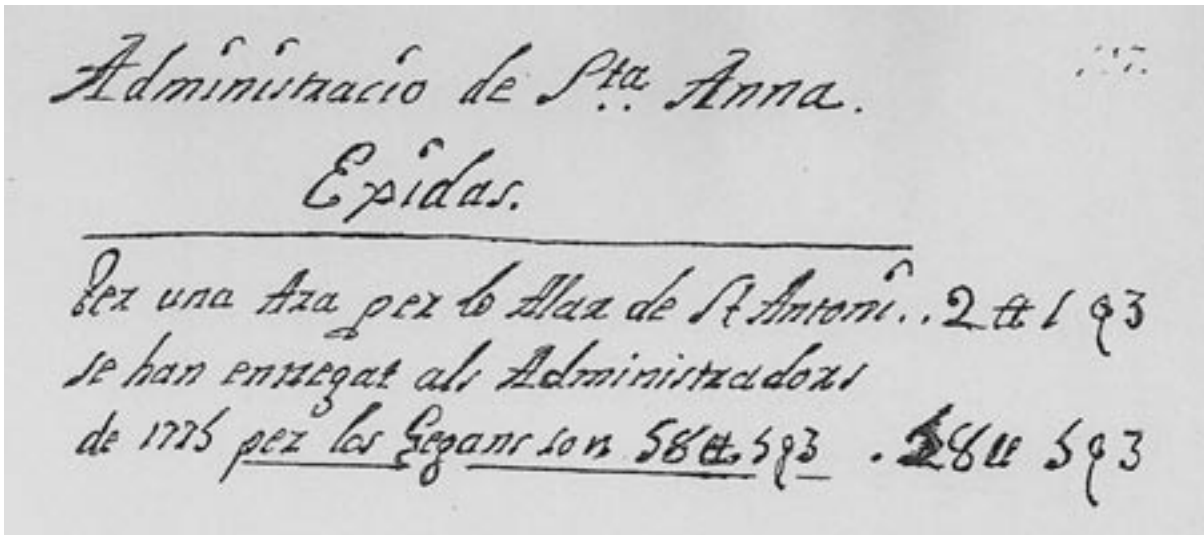 Administracio de Sta. Anna.
Epidas.
Per una Ara per lo Altar de St Antoni.. 2 ₶ 1 ẜ 3
se han entregat als Administradors
de 1775 per los Gegans son 58 ₶ 5 ẜ 3 . 58 ₶ 5 ẜ 3